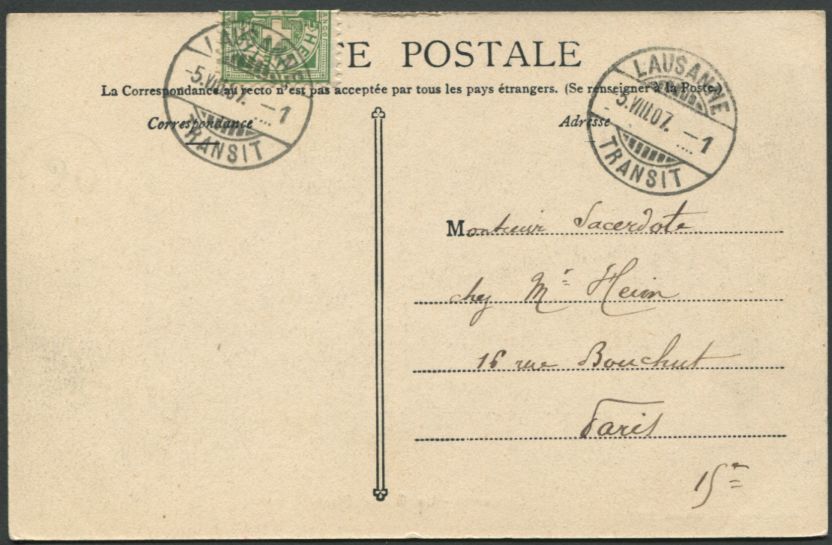 E POSTALE
La Correspondance au recto n'est pas acceptée par tous les pays étrangers. (Se renseigner à la Poste.)
Correspondance
Adresse
LAUSANNE
5.VIII.07. –1
TRANSIT
LAUSANNE
5.VIII.07. –1
TRANSIT
Monsieur Sacerdote
chez Mr Heim
16 rue Bouchut
Paris
15e